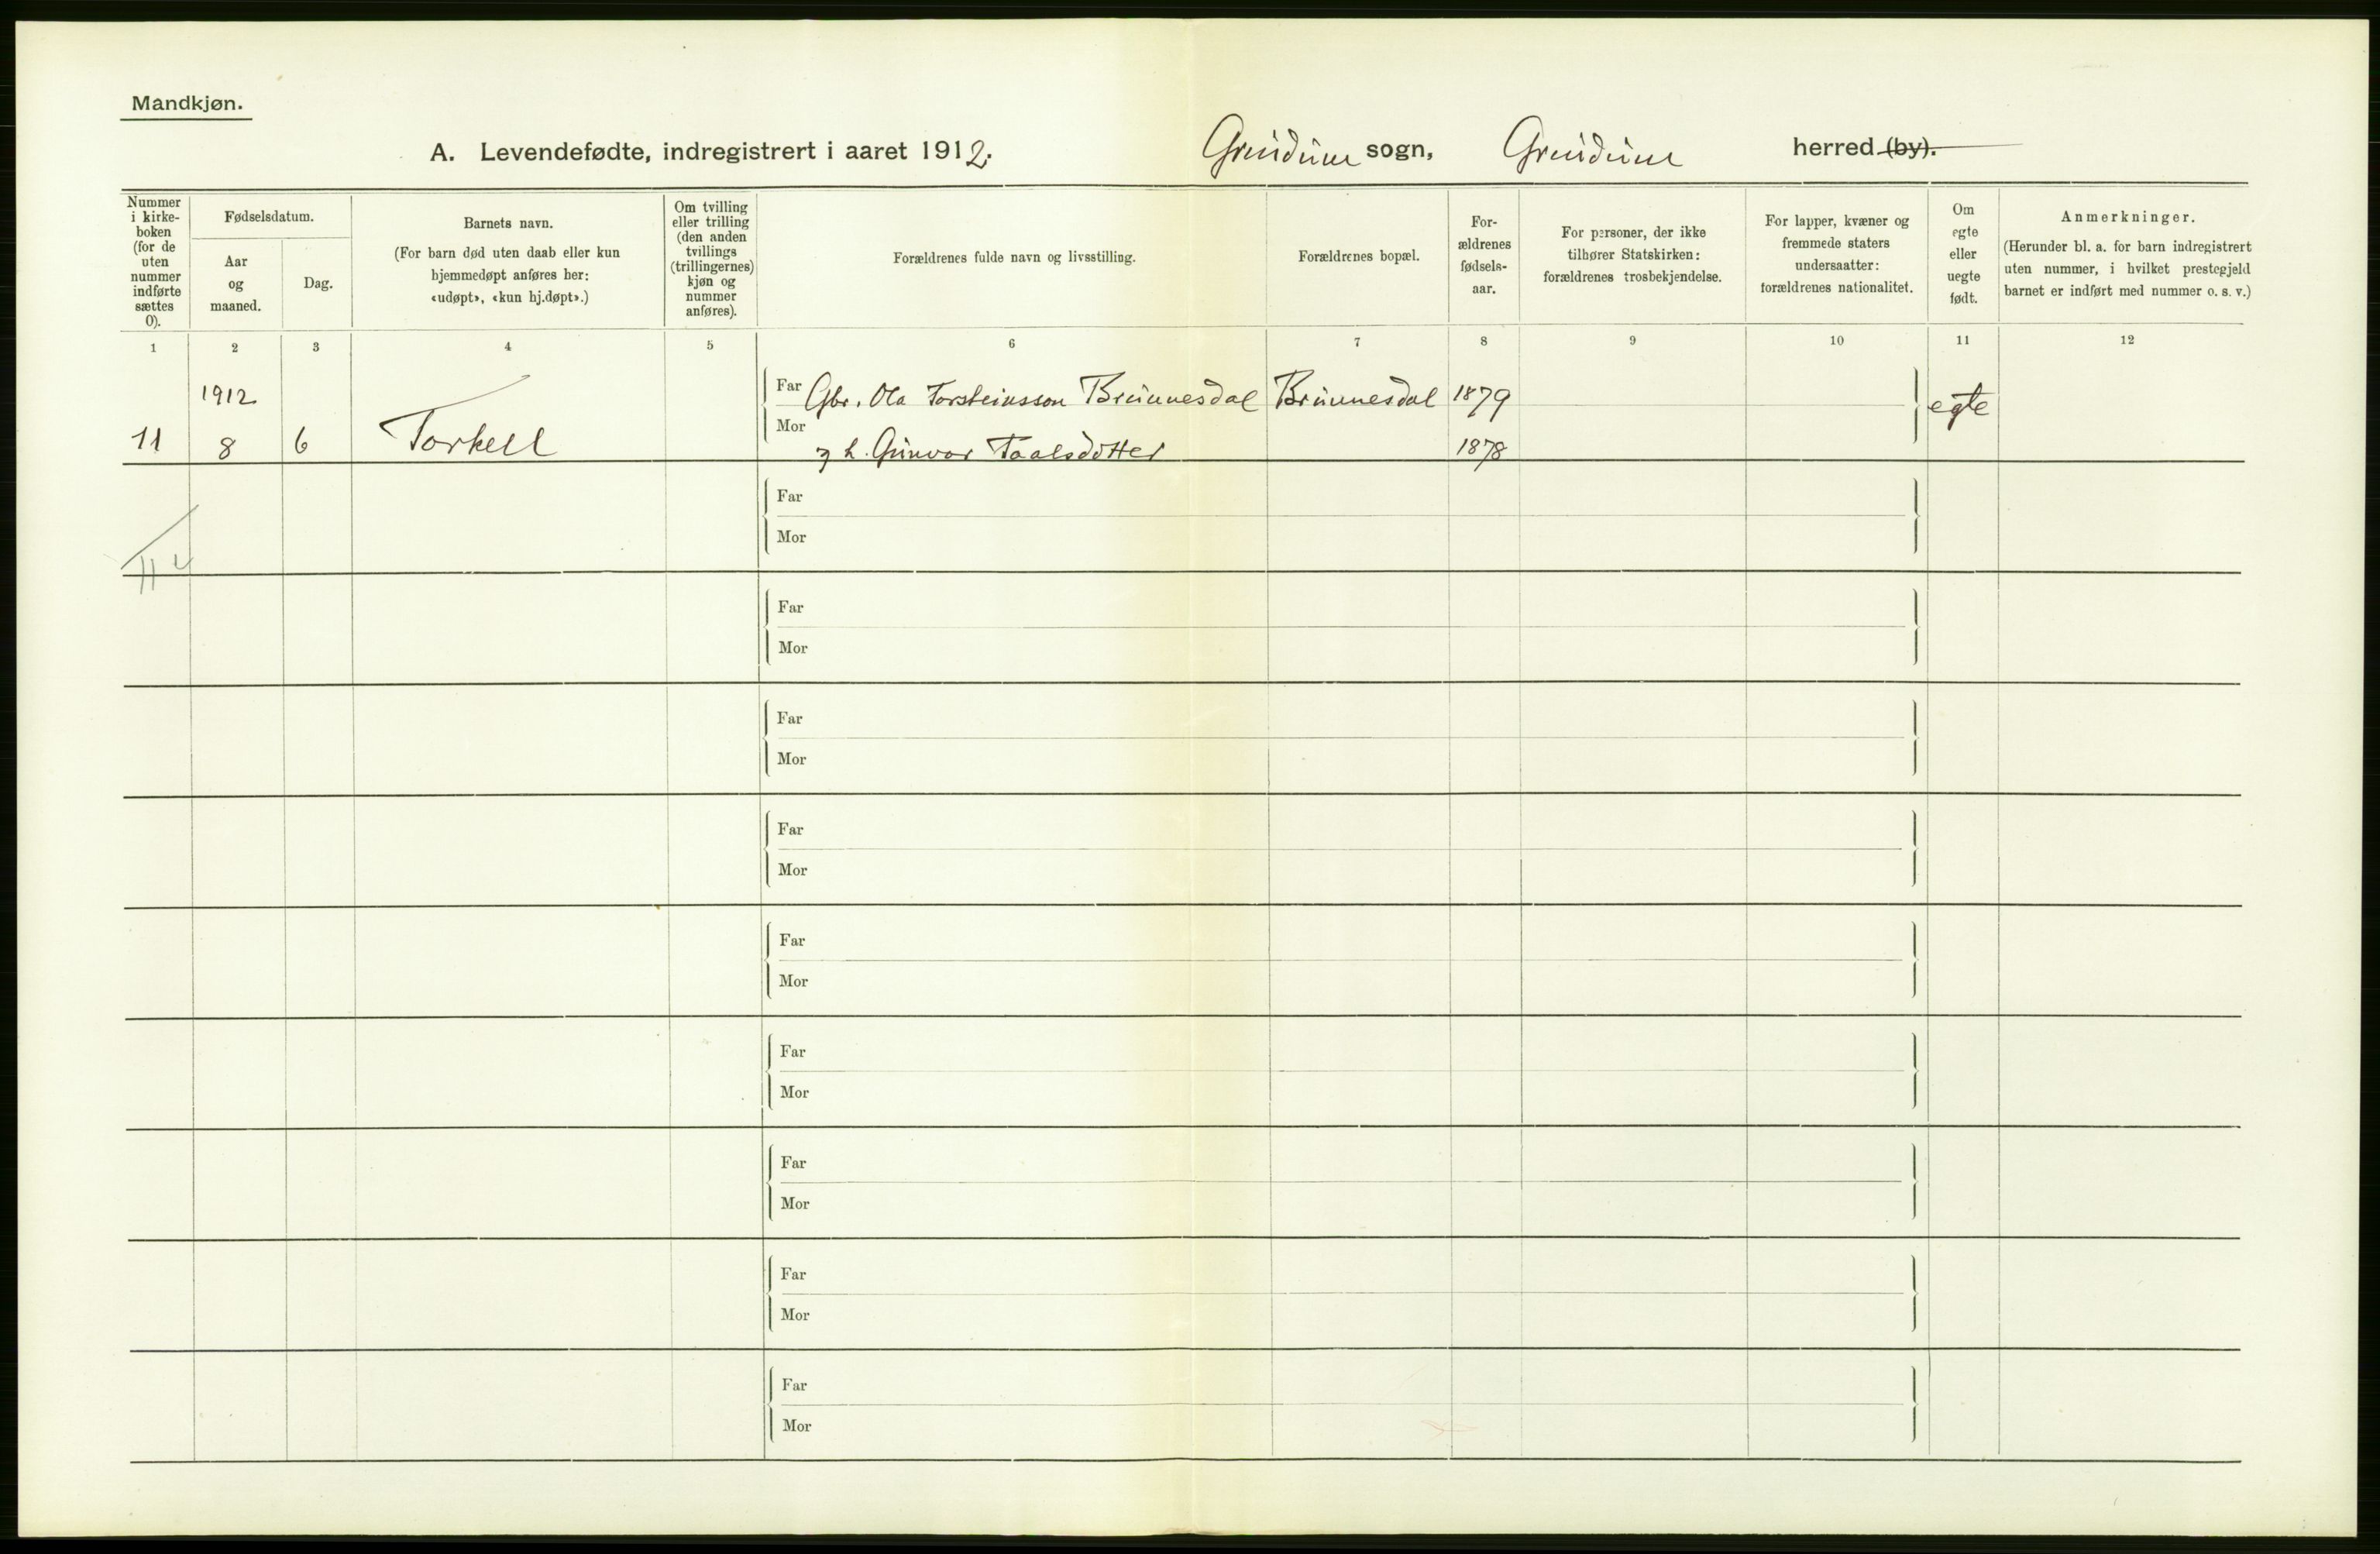 Mandkjøn.
A. Levendefødte, indregistrert i aaret 1912. Grindum sogn, Grindum herred (by).
Nummer i kirke-boken (for de uten nummer indførte sættes 0).
Fødselsdatum.
Aar og maaned.
Dag.
Barnets navn.
(For barn død uten daab eller kun hjemmedøpt anføres her: «udøpt», «kun hj.døpt».)
Om tvilling eller trilling (den anden tvillings (trillingernes) kjøn og nummer anføres).
Forældrenes fulde navn og livsstilling.
Forældrenes bopæl.
For-ældrenes fødsels-aar.
For personer, der ikke tilhører Statskirken: forældrenes trosbekjendelse.
For lapper, kvæner og fremmede staters undersaatter: forældrenes nationalitet.
Om egte eller uegte født.
Anmerkninger.
(Herunder bl. a. for barn indregistrert uten nummer, i hvilket prestegjeld barnet er indført med nummer o. s. v.)
1 2 3 4 5 6 7 8 9 10 11 12
1912 Far Gbr. Ola Torsteinsson Brunnesdal Brunnesdal 1879 egte
11 8 6 Torkell Mor g h. Gunvor Taalsdotter 1878
Far
Mor
11
Far
Mor
Far
Mor
Far
Mor
Far
Mor
Far
Mor
Far
Mor
Far
Mor
Far
Mor